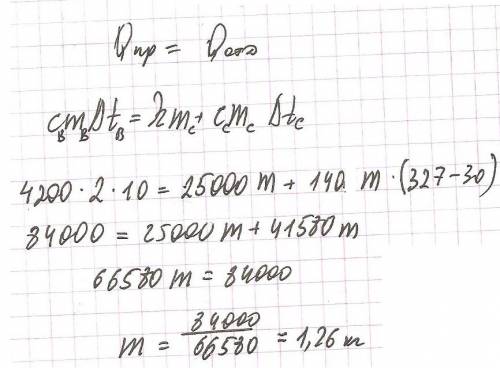 Qпр = Qотд
cвmвΔtв = λmc + ccmc Δtc
4200 · 2 · 10 = 25000 m + 140 m · (327-30)
84000 = 25000 m + 41580 m
66580 m = 84000
m = 84000/66580 = 1,26 кг